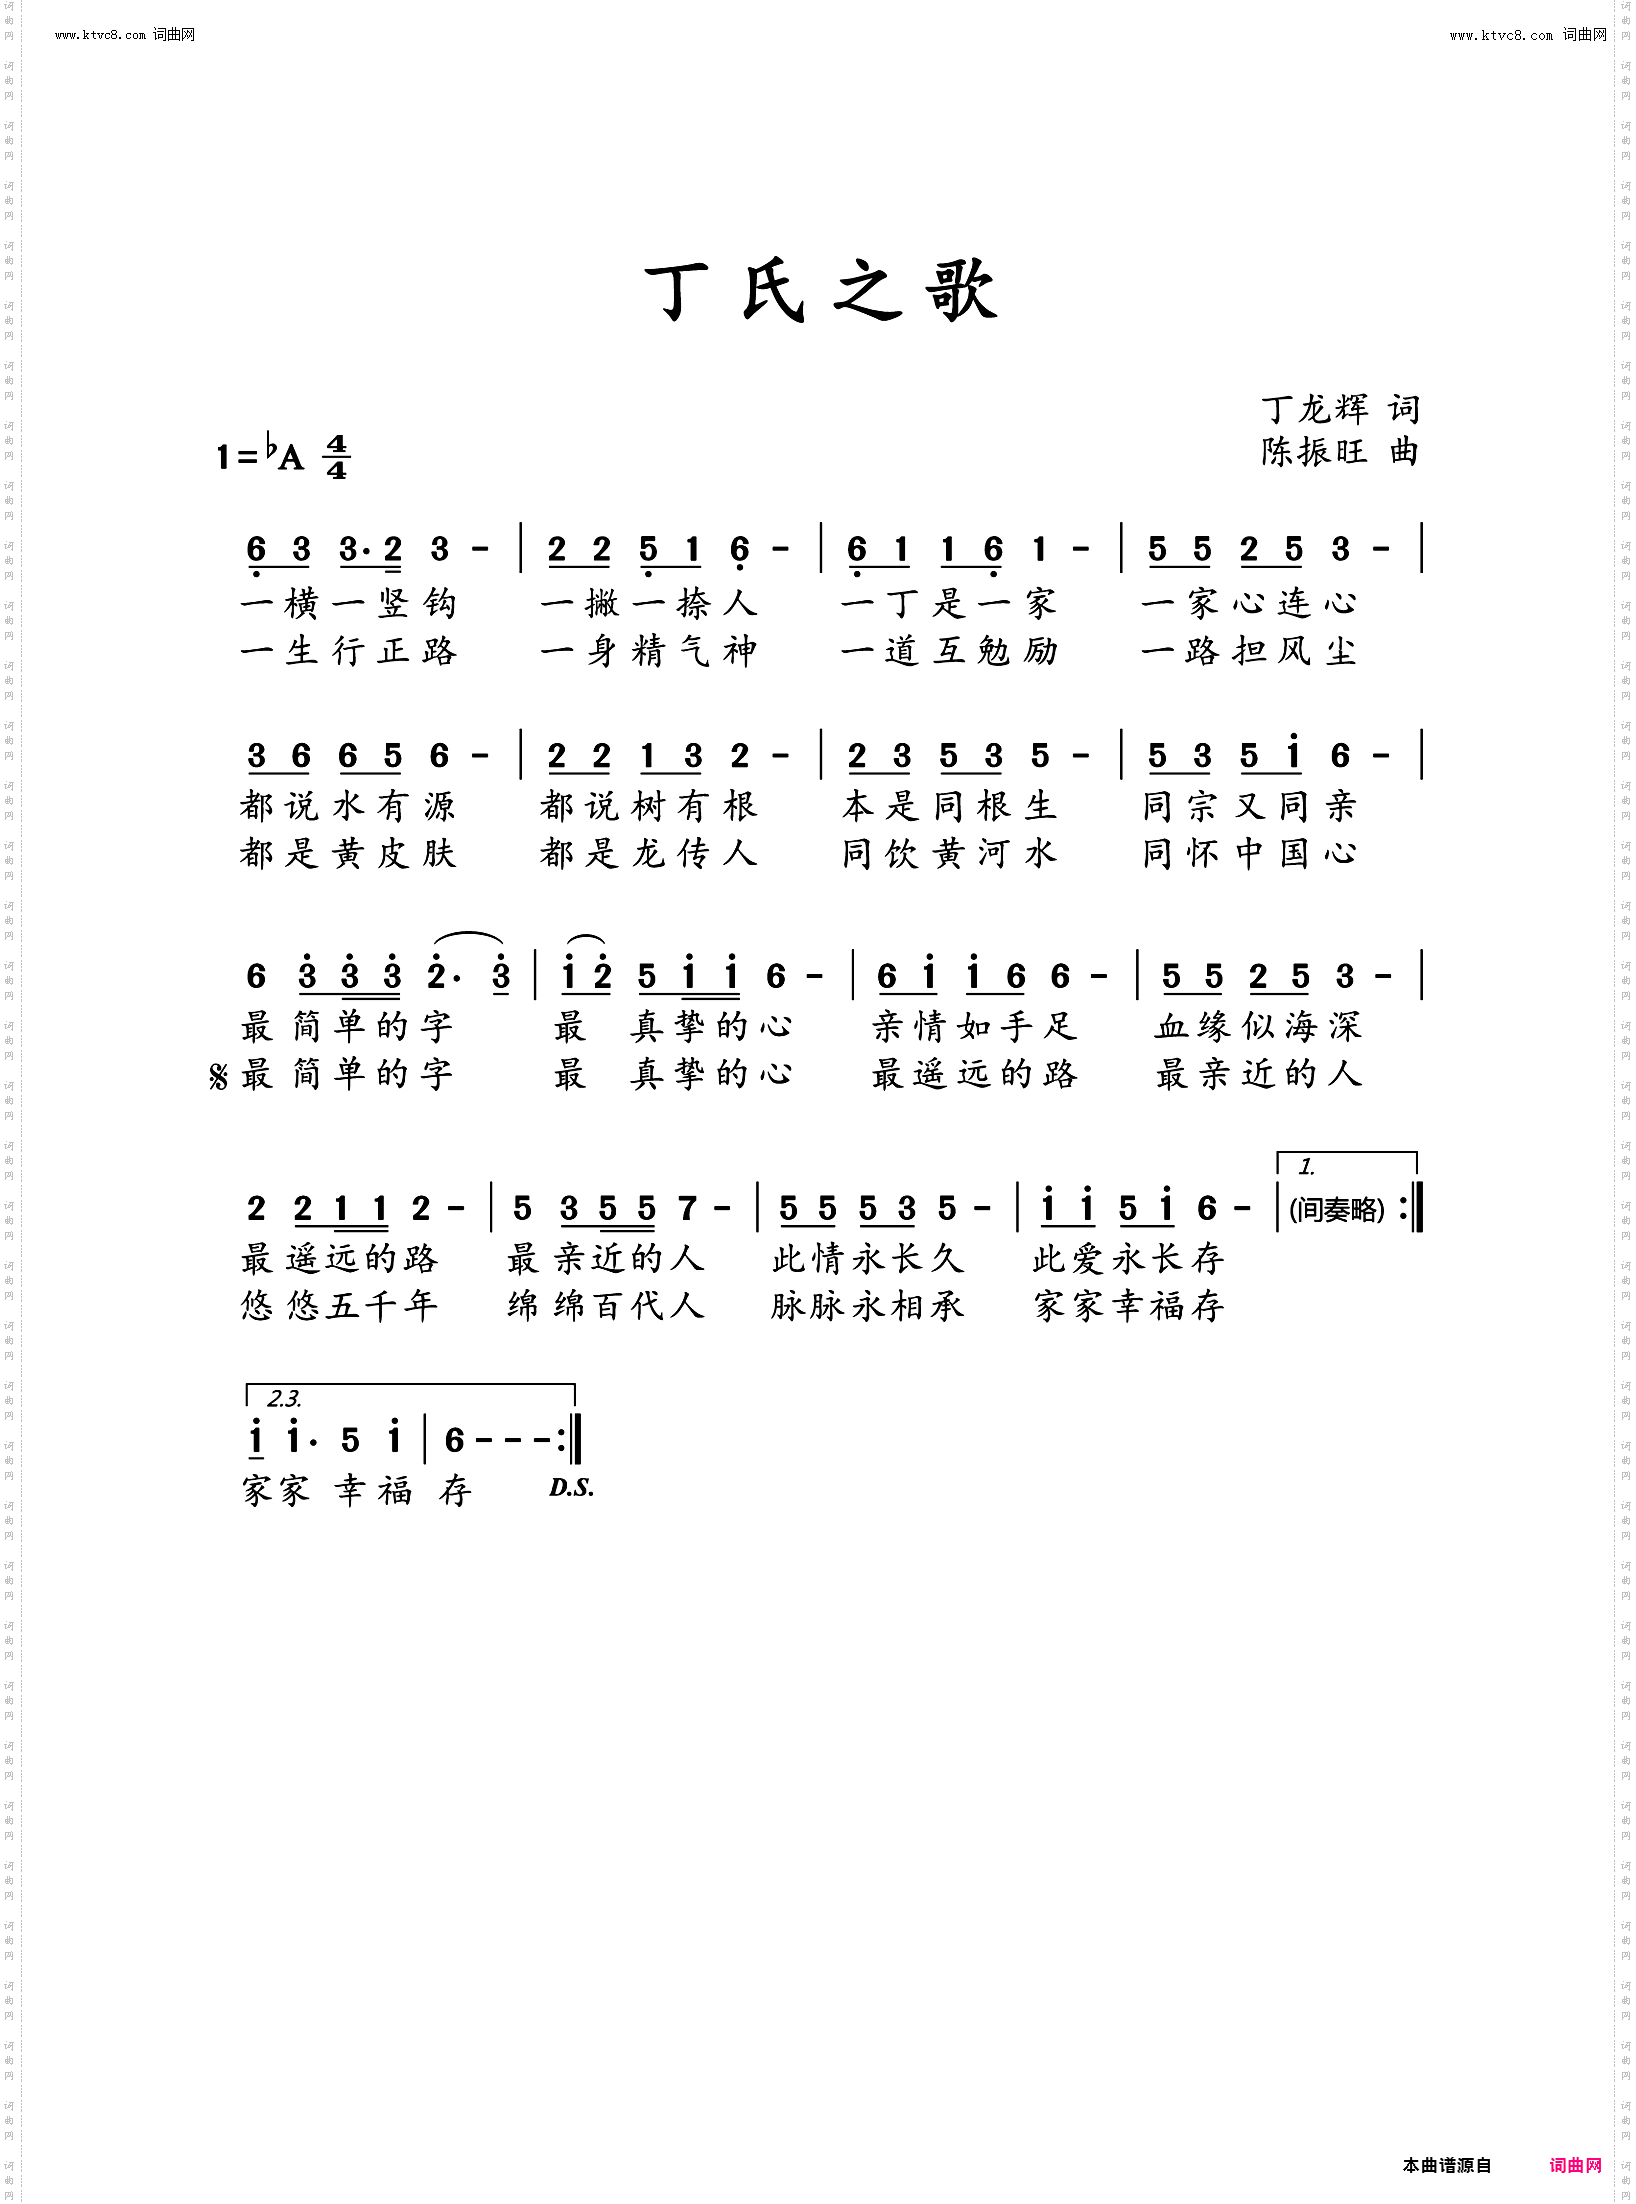 www.ktvc8.com 词曲网
www.ktvc8.com 词曲网
丁氏之歌
丁龙辉 词
陈振旺 曲
1=♭A 4/4
6 3 3· 2 3 - | 2 2 5 1 6 - | 6 1 1 6 1 - | 5 5 2 5 3 - |
一横一竖钩 一撇一捺人 一丁是一家 一家心连心
一生行正路 一身精气神 一道互勉励 一路担风尘
3 6 6 5 6 - | 2 2 1 3 2 - | 2 3 5 3 5 - | 5 3 5 1 6 - |
都说水有源 都说树有根 本是同根生 同宗又同亲
都是黄皮肤 都是龙传人 同饮黄河水 同怀中国心
6 3 3 3 2· 3 | 1 2 5 1 1 6 - | 6 1 1 6 6 - | 5 5 2 5 3 - |
最简单的字 最真挚的心 亲情如手足 血缘似海深
最简单的字 最真挚的心 最遥远的路 最亲近的人
1.
2 2 1 1 2 - | 5 3 5 5 7 - | 5 5 5 3 5 - | 1 1 5 1 6 - | (间奏略) :|
最遥远的路 最亲近的人 此情永长久 此爱永长存
悠悠五千年 绵绵百代人 脉脉永相承 家家幸福存
2.3.
1 1· 5 1 | 6 - - - :|
家家幸福存 D.S.
本曲谱源自 词曲网